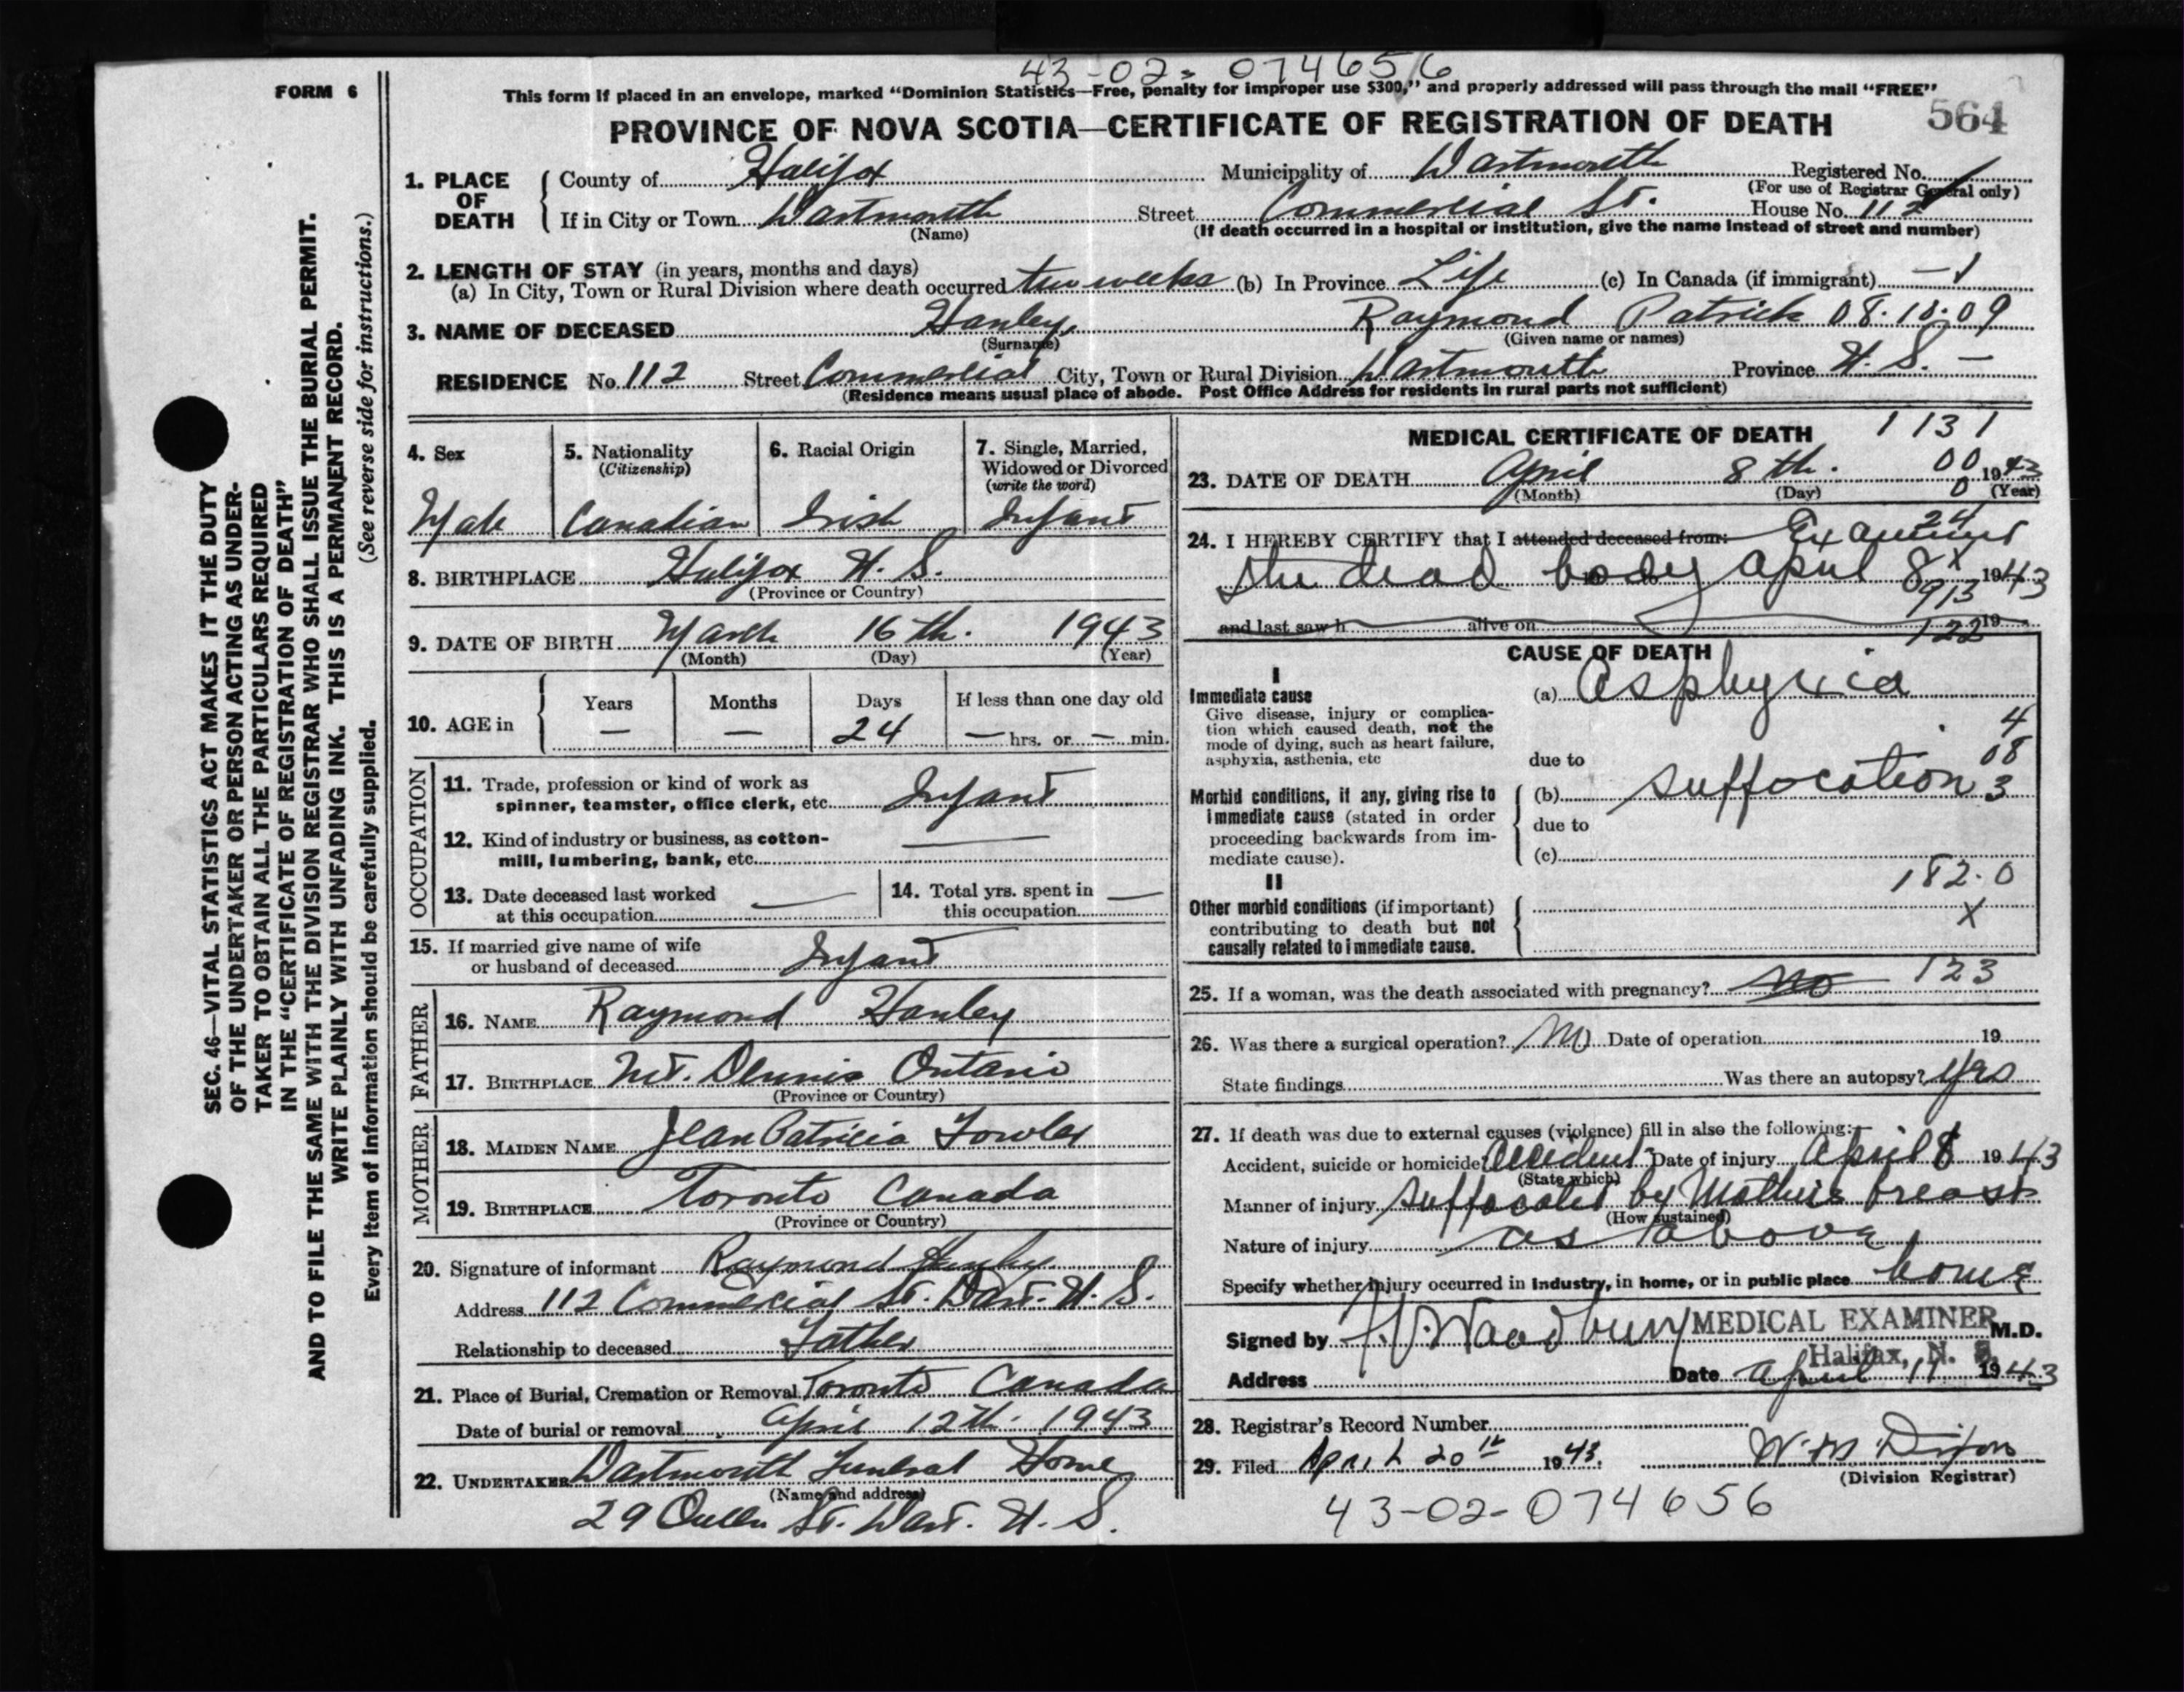 43-02-074656
FORM 6
This form if placed in an envelope, marked “Dominion Statistics—Free, penalty for improper use $300,” and properly addressed will pass through the mail “FREE”
PROVINCE OF NOVA SCOTIA—CERTIFICATE OF REGISTRATION OF DEATH 564
1. PLACE OF DEATH
County of Halifax Municipality of Dartmouth Registered No.
(For use of Registrar General only)
If in City or Town Dartmouth Street Commercial St. House No. 112
(Name) (If death occurred in a hospital or institution, give the name instead of street and number)
2. LENGTH OF STAY (in years, months and days)
(a) In City, Town or Rural Division where death occurred two weeks (b) In Province Life (c) In Canada (if immigrant) —
3. NAME OF DECEASED Hanley, Raymond Patrick 08.10.09
(Surname) (Given name or names)
RESIDENCE No. 112 Street Commercial City, Town or Rural Division Dartmouth Province N. S. —
(Residence means usual place of abode. Post Office Address for residents in rural parts not sufficient)
SEC. 46—VITAL STATISTICS ACT MAKES IT THE DUTY
OF THE UNDERTAKER OR PERSON ACTING AS UNDER-
TAKER TO OBTAIN ALL THE PARTICULARS REQUIRED
IN THE “CERTIFICATE OF REGISTRATION OF DEATH”
AND TO FILE THE SAME WITH THE DIVISION REGISTRAR WHO SHALL ISSUE THE BURIAL PERMIT.
WRITE PLAINLY WITH UNFADING INK. THIS IS A PERMANENT RECORD.
Every item of information should be carefully supplied. (See reverse side for instructions.)
4. Sex
Male
5. Nationality
(Citizenship)
Canadian
6. Racial Origin
Irish
7. Single, Married,
Widowed or Divorced
(write the word)
Infant
8. BIRTHPLACE Halifax N. S.
(Province or Country)
9. DATE OF BIRTH March 16th. 1943
(Month) (Day) (Year)
10. AGE in
Years Months Days If less than one day old
— — 24 — hrs. or — min.
OCCUPATION
11. Trade, profession or kind of work as
spinner, teamster, office clerk, etc. Infant
12. Kind of industry or business, as cotton-
mill, lumbering, bank, etc. —
13. Date deceased last worked
at this occupation —
14. Total yrs. spent in
this occupation —
15. If married give name of wife
or husband of deceased Infant
FATHER
16. NAME Raymond Hanley
17. BIRTHPLACE Mt. Dennis Ontario
(Province or Country)
MOTHER
18. MAIDEN NAME Jean Patricia Fowler
19. BIRTHPLACE Toronto Canada
(Province or Country)
20. Signature of informant Raymond Hanley
Address 112 Commercial St. Dart. N. S.
Relationship to deceased Father
21. Place of Burial, Cremation or Removal Toronto Canada
Date of burial or removal April 12th. 1943
22. UNDERTAKER Dartmouth Funeral Home
(Name and address)
29 Queen St. Dart. N. S.
MEDICAL CERTIFICATE OF DEATH 1131
23. DATE OF DEATH April 8th. 00 1943
(Month) (Day) 0 (Year)
24
24. I HEREBY CERTIFY that I attended deceased from: Examined
the dead body April 8 x 1943
913
and last saw h alive on 19
122
CAUSE OF DEATH
I
Immediate cause
Give disease, injury or complica-
tion which caused death, not the
mode of dying, such as heart failure,
asphyxia, asthenia, etc
(a) Asphyxia
4
due to 08
Morbid conditions, if any, giving rise to
immediate cause (stated in order
proceeding backwards from im-
mediate cause).
(b) suffocation 3
due to
(c)
182.0
II
Other morbid conditions (if important)
contributing to death but not
causally related to immediate cause.
X
25. If a woman, was the death associated with pregnancy? No 123
26. Was there a surgical operation? No Date of operation 19
State findings Was there an autopsy? Yes
27. If death was due to external causes (violence) fill in also the following:—
Accident, suicide or homicide? Accident Date of injury April 8 1943
(State which)
Manner of injury Suffocated by Mothers breast
(How sustained)
Nature of injury as above
Specify whether injury occurred in industry, in home, or in public place home
Signed by Woodbury MEDICAL EXAMINER M.D.
Halifax, N. S.
Address Date April 11 1943
28. Registrar's Record Number
29. Filed April 20th 1943. W. M. Dixon
(Division Registrar)
43-02-074656